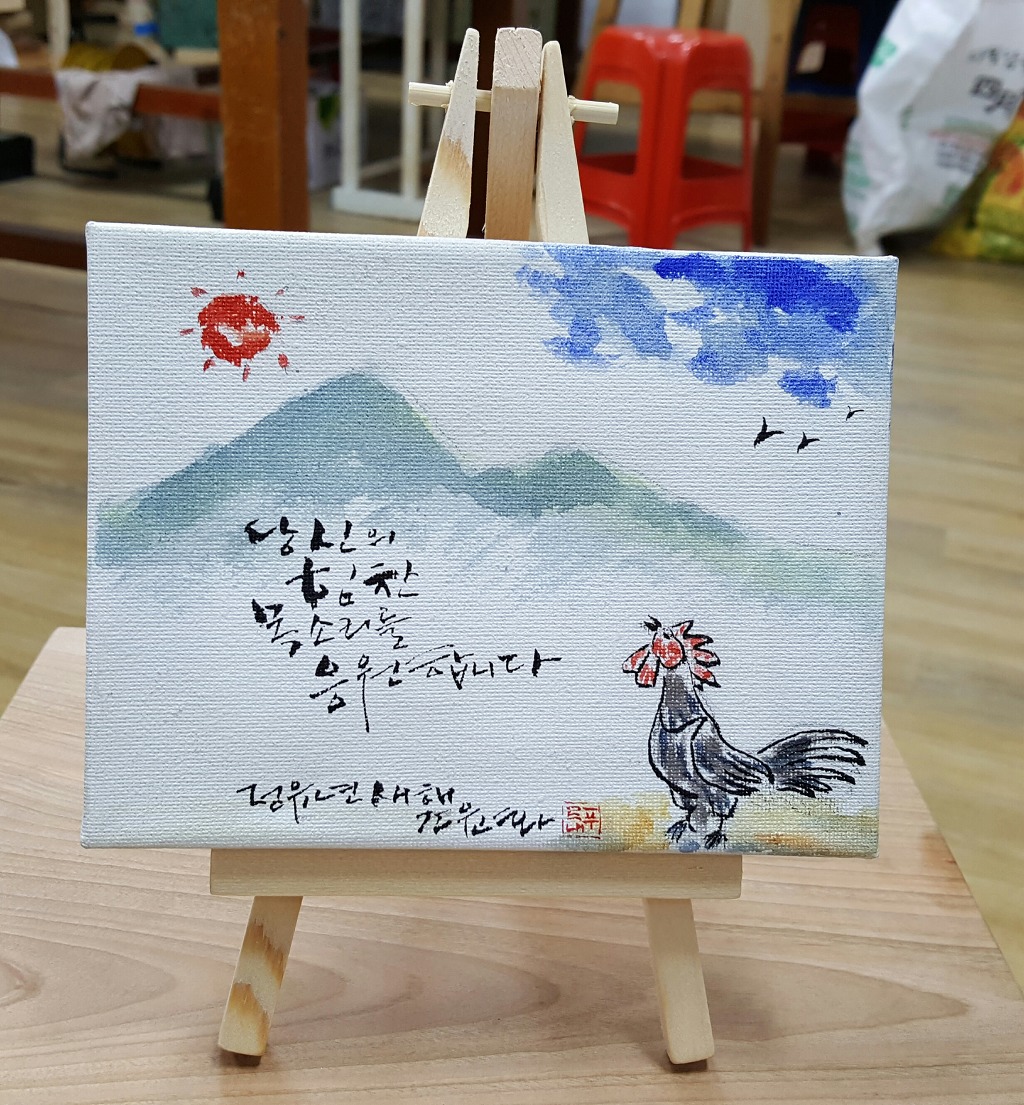 당신의
힘찬
목소리를
응원합니다
정유년 새해